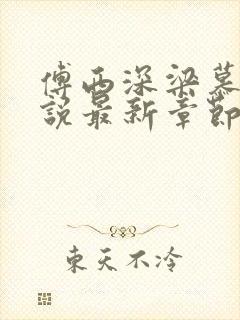 傅西深梁慕
說最新章節
東天不冷